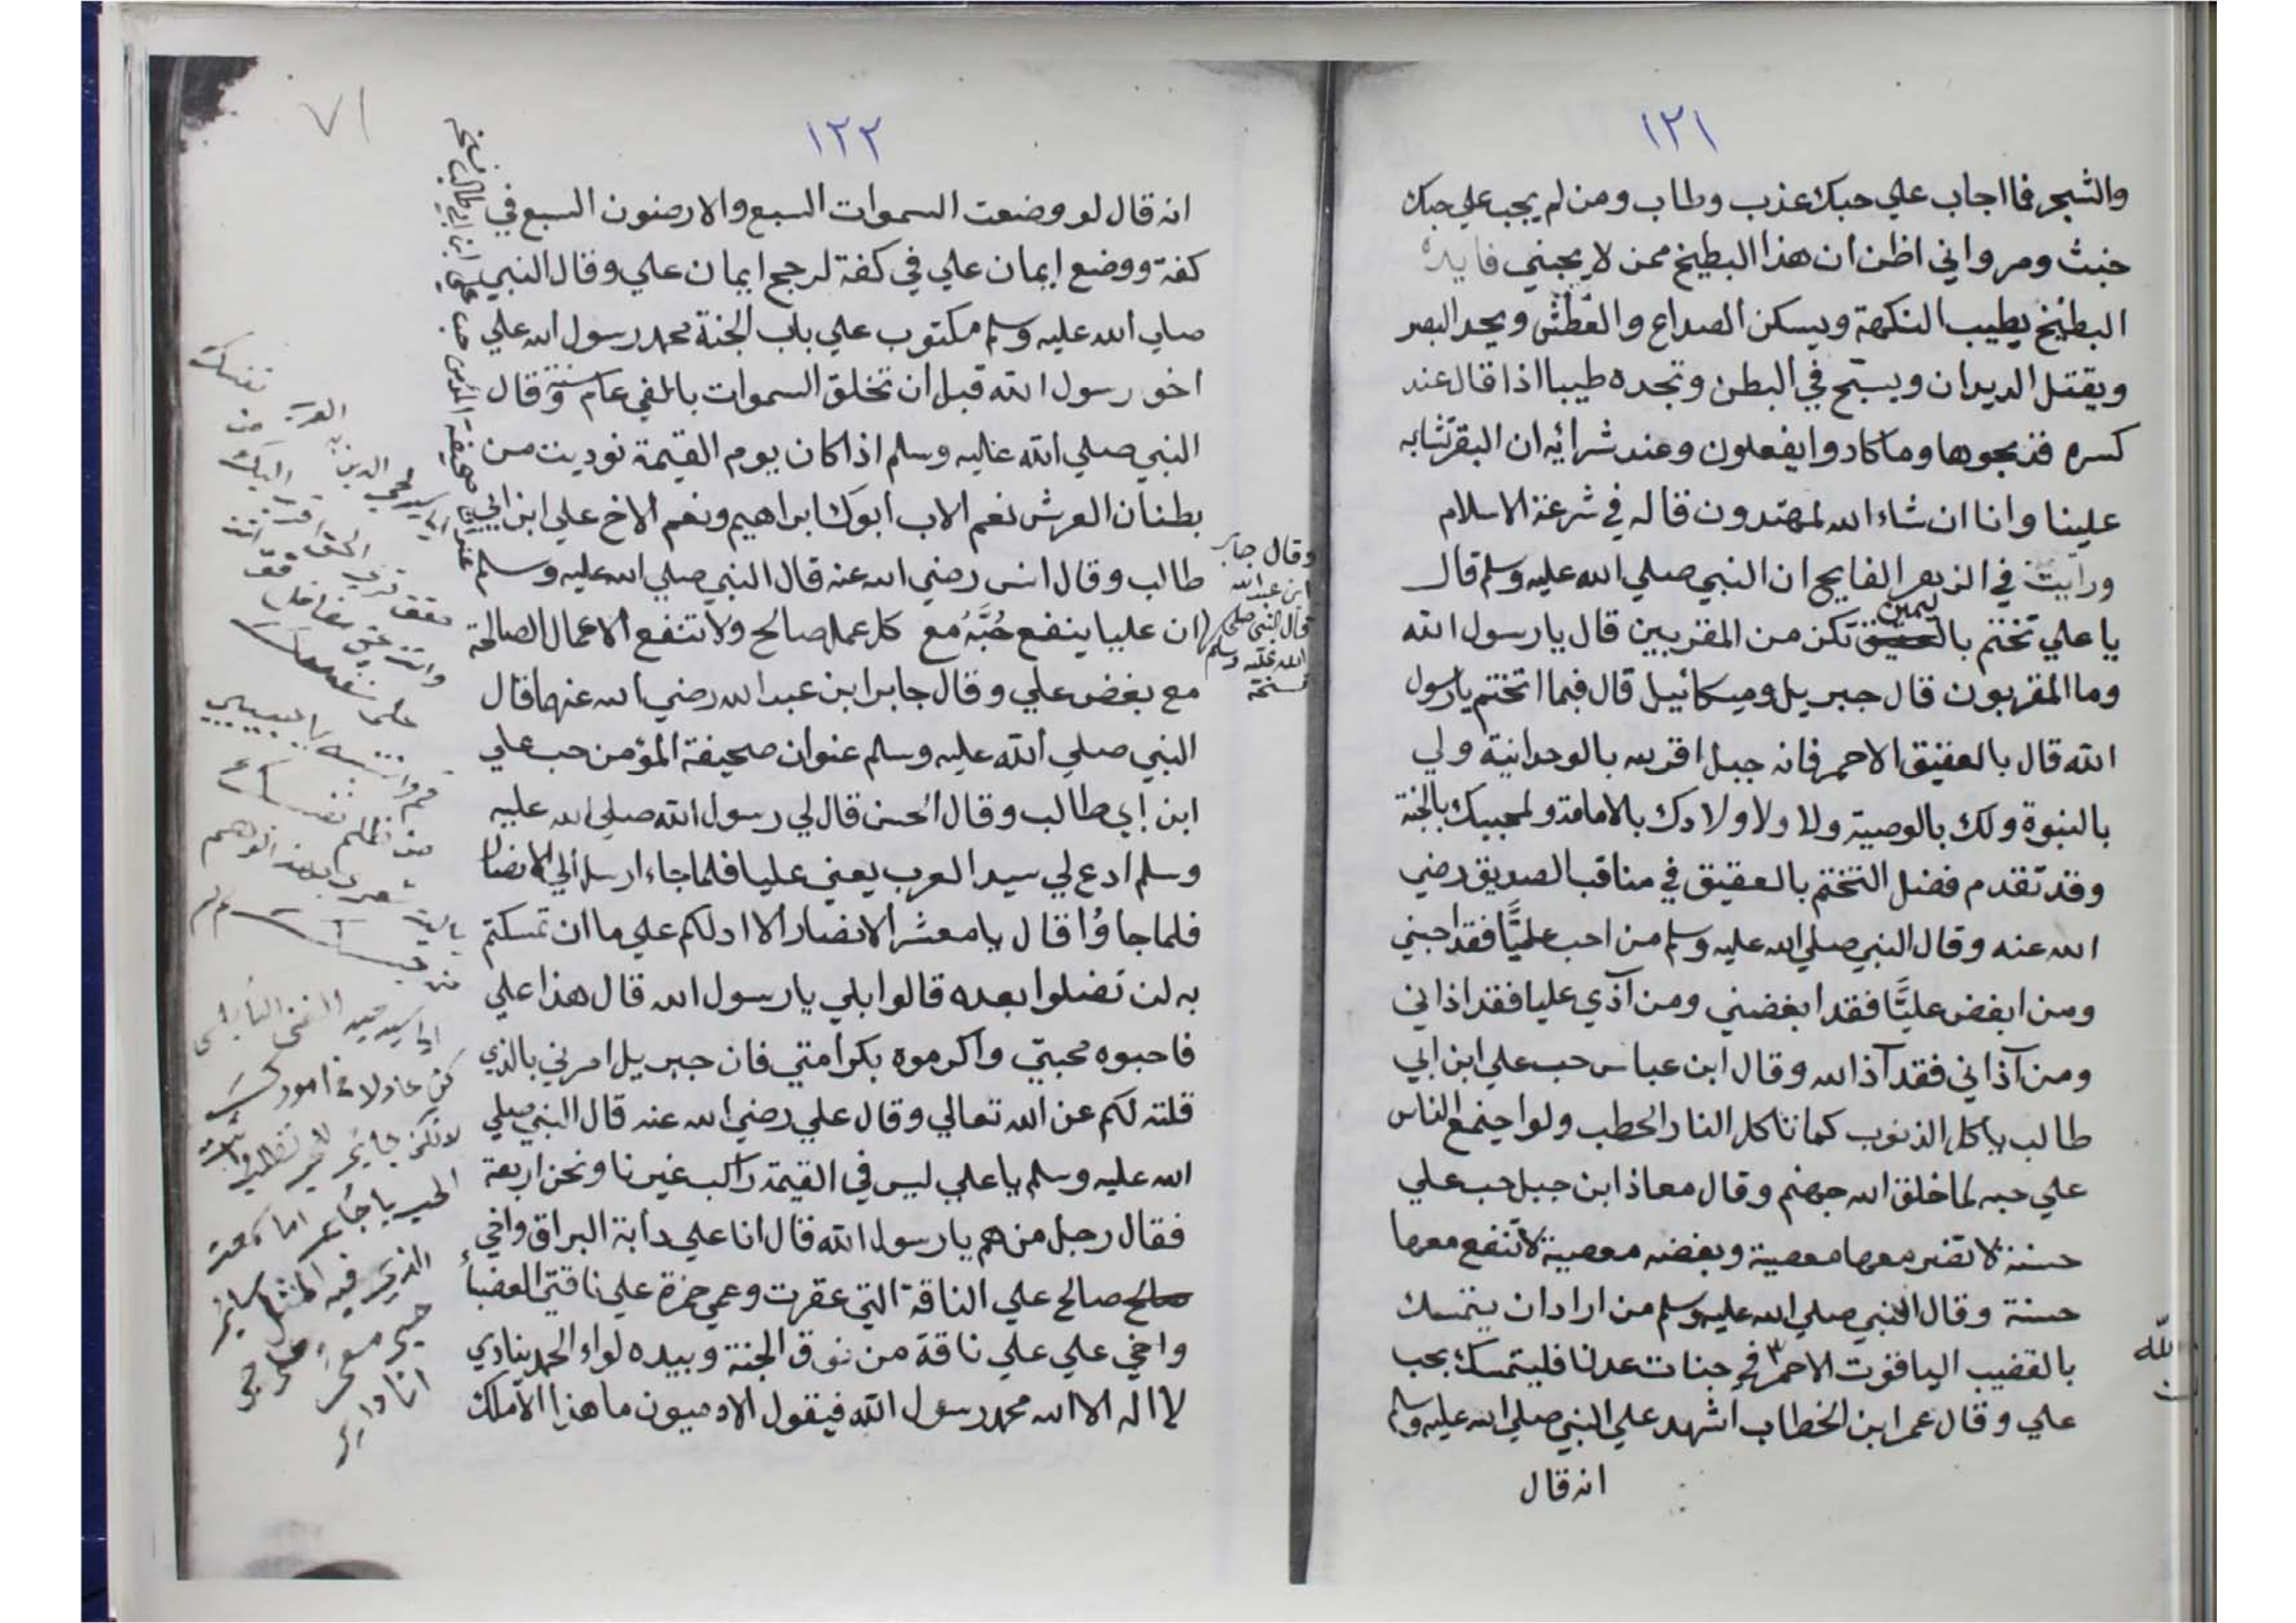 ١٢١
والشجر فما اجاب علي حبك عذب وطاب ومن لم يجب علي حبك
خبث ومر واني اظن ان هذا البطيخ ممن لا يحبني فايدة
البطيخ يطيب النكهة ويسكن الصداع والعطش ويحد البصر
ويقتل الديدان ويسبح في البطن وتجده طيبا اذا قال عند
كسره فذبحوها وما كادوا يفعلون وعند شرائه ان البقر تشابه
علينا وانا ان شاء الله لمهتدون قاله في شرعة الاسلام
ورايت في الزهر الفايح ان النبي صلي الله عليه وسلم قال
يا علي تختم باليمين تكن من المقربين قال يا رسول الله
وما المقربون قال جبريل وميكائيل قال فبما اتختم يا رسول
الله قال بالعقيق الاحمر فانه جبل اقر لله بالوحدانية ولي
بالنبوة ولك بالوصية ولاولادك بالامامة ولمحبيك بالجنة
وقد تقدم فضل التختم بالعقيق في مناقب الصديق رضي
الله عنه وقال النبي صلي الله عليه وسلم من احب عليًّا فقد احبني
ومن ابغض عليًّا فقد ابغضني ومن آذي عليا فقد اذاني
ومن آذاني فقد آذ الله وقال ابن عباس حب علي ابن ابي
طالب ياكل الذنوب كما تاكل النار الحطب ولو اجتمع الناس
علي حبه لما خلق الله جهنم وقال معاذ ابن جبل حب علي
حسنة لا تضر معها معصية وبغضه معصية لا تنفع معها
حسنة وقال النبي صلي الله عليه وسلم من اراد ان يتمسك
بالقضيب الياقوت الاحمر في جنات عدن فليتمسك بحب
علي وقال عمر ابن الخطاب اشهد علي النبي صلي الله عليه وسلم
انه قال
١٢٢
٧١
انه قال لو وضعت السموات السبع والارضون السبع في
كفة ووضع إيمان علي في كفة لرجح ايمان علي وقال النبي
صلي الله عليه وسلم مكتوب علي باب الجنة محمد رسول الله علي
اخو رسول الله قبل ان تخلق السموات بالفي عام وقال
النبي صلي الله عليه وسلم اذا كان يوم القيمة نوديت من
بطنان العرش نعم الاب ابوك ابراهيم ونعم الاخ علي ابن ابي
طالب وقال انس رضي الله عنه قال النبي صلي الله عليه وسلم
ان عليا ينفع حُبَّهُ مع كل عمل صالح ولا تنفع الاعمال الصالحة
مع بغض علي وقال جابر ابن عبد الله رضي الله عنهما قال
النبي صلي الله عليه وسلم عنوان صحيفة المؤمن حب علي
ابن ابي طالب وقال الحسن قال لي رسول الله صلي الله عليه
وسلم ادع لي سيد العرب يعني عليا فلما جاء ارسل الي الانصار
فلما جاؤا قال يا معشر الانصار الا ادلكم علي ما ان تمسكتم
به لن تضلوا بعده قالوا بلي يا رسول الله قال هذا علي
فاحبوه محبتي واكرموه بكرامتي فان جبريل امرني بالذي
قلته لكم عن الله تعالي وقال علي رضي الله عنه قال النبي صلي
الله عليه وسلم يا علي ليس في القيمة راكب غيرنا ونحن اربعة
فقال رجل من هم يا رسول الله قال انا علي دابة البراق واخي
صالح علي الناقة التي عقرت وعمي حمزة علي ناقتي العضبا
واخي علي علي ناقة من نوق الجنة وبيده لواء الحمد ينادي
لا اله الا الله محمد رسول الله فيقول الادميون ما هذا الا ملك
وقال جابر
ابن عبد الله
قال النبي صلي
الله عليه وسلم
نسخة
عنوان صحيفة المؤمن حب علي ابن ابي طالب نسخه